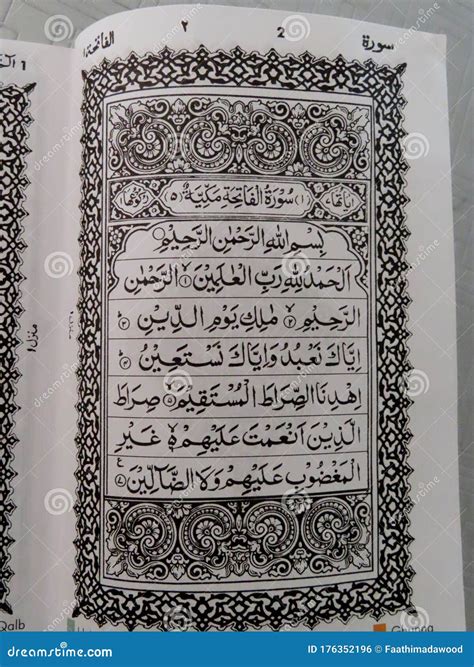 سورة 2 ٢ الفاتحة ١
اٰیاتُهَا ٧ (١) سُوْرَةُ الْفَاتِحَةِ مَكِّيَّةٌ (٥) رُكُوْعُهَا ١
بِسْمِ اللهِ الرَّحْمٰنِ الرَّحِيْمِ
اَلْحَمْدُ لِلّٰهِ رَبِّ الْعٰلَمِيْنَ ۙ﴿١﴾ الرَّحْمٰنِ
الرَّحِيْمِ ۙ﴿٢﴾ مٰلِكِ يَوْمِ الدِّيْنِ ﴿٣﴾
اِيَّاكَ نَعْبُدُ وَاِيَّاكَ نَسْتَعِيْنُ ﴿٤﴾
اِهْدِنَا الصِّرَاطَ الْمُسْتَقِيْمَ ۙ﴿٥﴾ صِرَاطَ
الَّذِيْنَ اَنْعَمْتَ عَلَيْهِمْ ۙ۬﴿٦﴾ غَيْرِ
الْمَغْضُوْبِ عَلَيْهِمْ وَلَا الضَّآلِّيْنَ ﴿٧﴾
منزل ١
Qalb
Ghunna
dreamstime.com
ID 176352196 © Faathimadawood